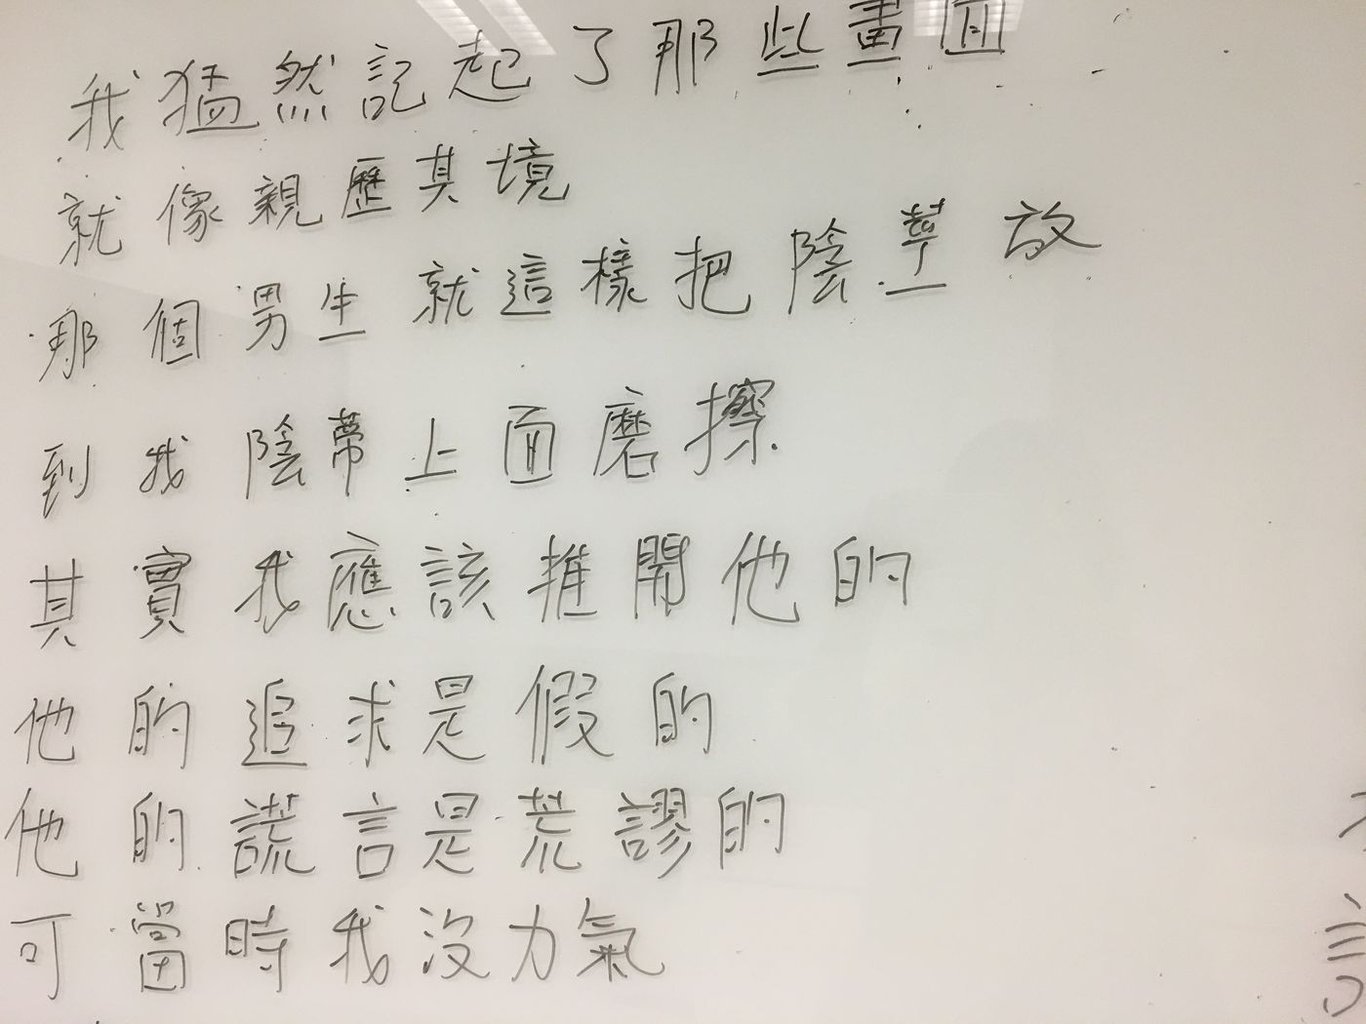 我猛然記起了那些畫面
就像親歷其境
那個男生就這樣把陰莖放
到我陰蒂上面磨擦
其實我應該推開他的
他的追求是假的
他的謊言是荒謬的
可當時我沒力氣